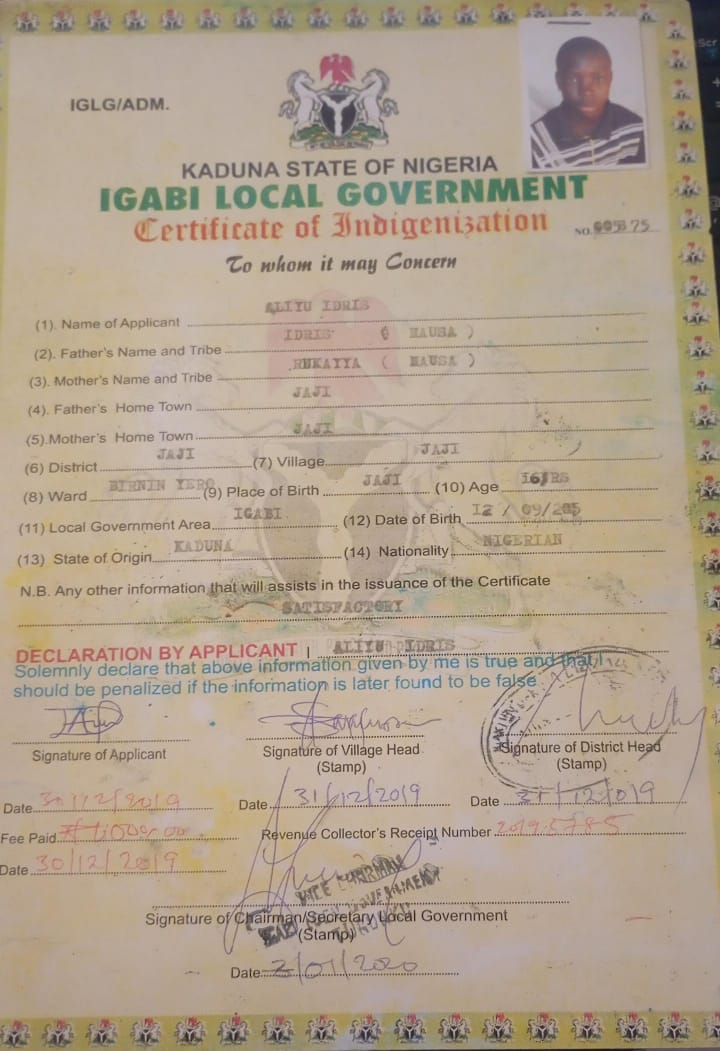 IGLG/ADM.
KADUNA STATE OF NIGERIA
IGABI LOCAL GOVERNMENT
Certificate of Indigenization
NO.
To whom it may Concern
(1). Name of Applicant ALIYU IDRIS
(2). Father's Name and Tribe IDRIS ( HAUSA )
(3). Mother's Name and Tribe RUKAYYA ( HAUSA )
(4). Father's Home Town JAJI
(5).Mother's Home Town JAJI
(6) District JAJI (7) Village JAJI
(8) Ward BIRNIN YERO (9) Place of Birth JAJI (10) Age 16YRS
(11) Local Government Area IGABI (12) Date of Birth 12 / 09/
(13) State of Origin KADUNA (14) Nationality NIGERIAN
N.B. Any other information that will assists in the issuance of the Certificate
SATISFACTORY
DECLARATION BY APPLICANT I ALIYU IDRIS
Solemnly declare that above information given by me is true and that I
should be penalized if the information is later found to be false.
Signature of Applicant Signature of Village Head Signature of District Head
(Stamp) (Stamp)
Date 30/12/2019 Date 31/12/2019 Date 31/12/019
Fee Paid Revenue Collector's Receipt Number
Date 30/12/2019
VICE CHAIRMAN
IGABI LOCAL GOVERNMENT
Signature of Chairman/Secretary Local Government
(Stamp)
Date 2/01/2020